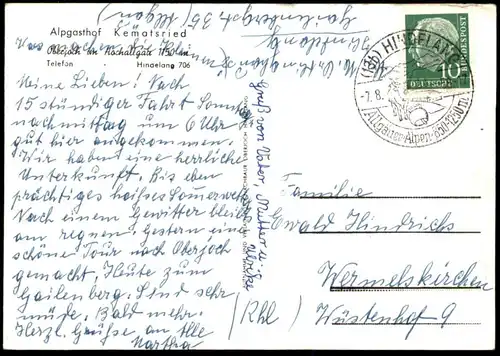 Alpgasthof Kematsried
Oberjoch im Hochallgäu
Telefon Hindelang 706
Meine Lieben! Nach
15 stündiger Fahrt Sonntag
nachmittag um 6 Uhr
gut hier angekommen.
Wir haben eine herrliche
Unterkunft. Bis eben
prächtiges heißes Sommerwetter
Nach einem Gewitter bleibt
am regnen. Gestern eine
schöne Tour nach Oberjoch
gemacht, Heute zum
Gailenberg. Sind sehr
müde. Bald mehr.
Herzl. Grüße an Alle
Martha
Gruß von Vater, Mutter u.
Gailenbergstr. 35
(Allgäu)
HINDELANG
7.8.
Allgäuer Alpen 850-1250 m
DEUTSCHE BUNDESPOST
10
Familie
Ewald Hindrichs
Wermelskirchen
(Rhl) Wüstenhof 9